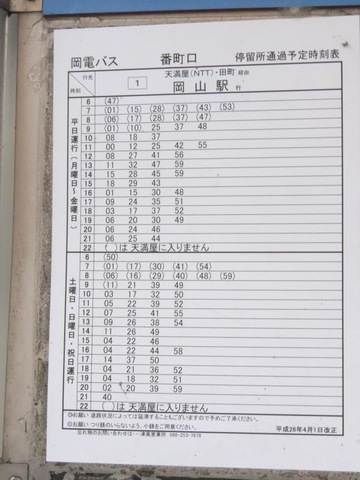 岡電バス 番町口 停留所通過予定時刻表
行先 時刻 1 天満屋(NTT)・田町 経由
岡山駅 行
平日運行(月曜日～金曜日)
6 (47)
7 (01) (15) (28) (37) (43) (53)
8 (06) (17) (28) (37) (47)
9 (01) (10) 25 37 48
10 08 18 37
11 00 12 25 42 55
12 08 27 41 56
13 11 32 47 59
14 15 28 45 59
15 18 29 43
16 01 15 30 48
17 09 24 35 51
18 03 17 37 52
19 06 20 30 49
20 06 24 46
21 06 25 44
22 ( )は 天満屋に入りません
土曜日・日曜日・祝日運行
6 (50)
7 (01) (17) (30) (41) (54)
8 (06) (16) (29) (40) (48) (59)
9 (11) 21 39 49
10 03 17 32 50
11 05 22 39 52
12 07 25 41 55
13 09 26 38 54
14 09 23 39 51
15 04 22 46
16 04 22 44 58
17 14 37 50
18 04 21 36 52
19 04 18 32 51
20 02 20 39 59
21 40
22 ( )は 天満屋に入りません
◎お願い 道路状況によっては延滞することもございますので予めご了承ください。
◎お願い つり銭のいらないよう、小銭をご用意ください。 平成26年4月1日改正